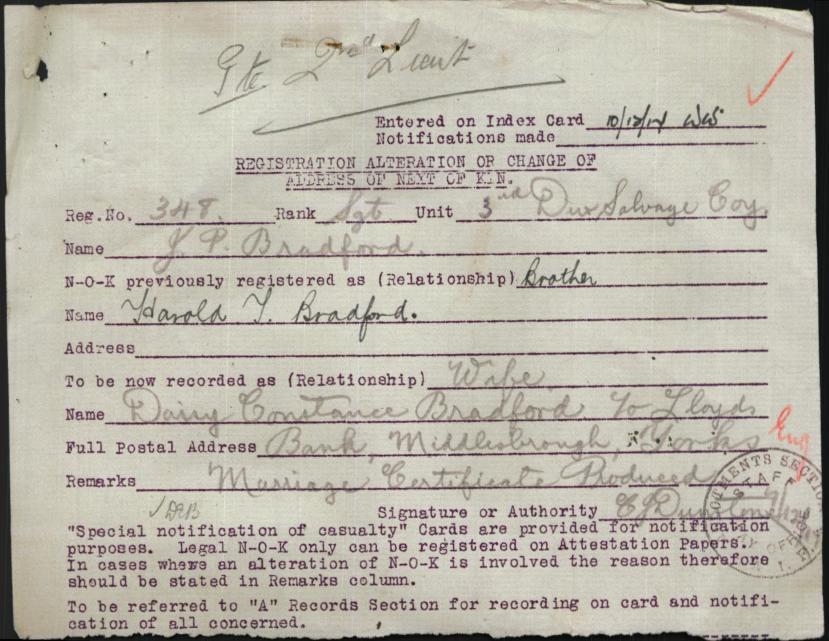 Pte 2nd Lieut
Entered on Index Card 10/12/17
Notifications made
REGISTRATION ALTERATION OR CHANGE OF
ADDRESS OF NEXT OF KIN.
Reg.No. 348. Rank Sgt Unit 3rd Div Salvage Coy.
Name J. P. Bradford.
N-O-K previously registered as (Relationship) Brother
Name Harold T. Bradford.
Address
To be now recorded as (Relationship) Wife
Name Daisy Constance Bradford c/o Lloyds
Full Postal Address Bank, Middlesbrough, Yorks Eng
Remarks Marriage Certificate Produced
Signature or Authority
"Special notification of casualty" Cards are provided for notification
purposes. Legal N-O-K only can be registered on Attestation Papers.
In cases where an alteration of N-O-K is involved the reason therefore
should be stated in Remarks column.
To be referred to "A" Records Section for recording on card and notifi-
cation of all concerned.